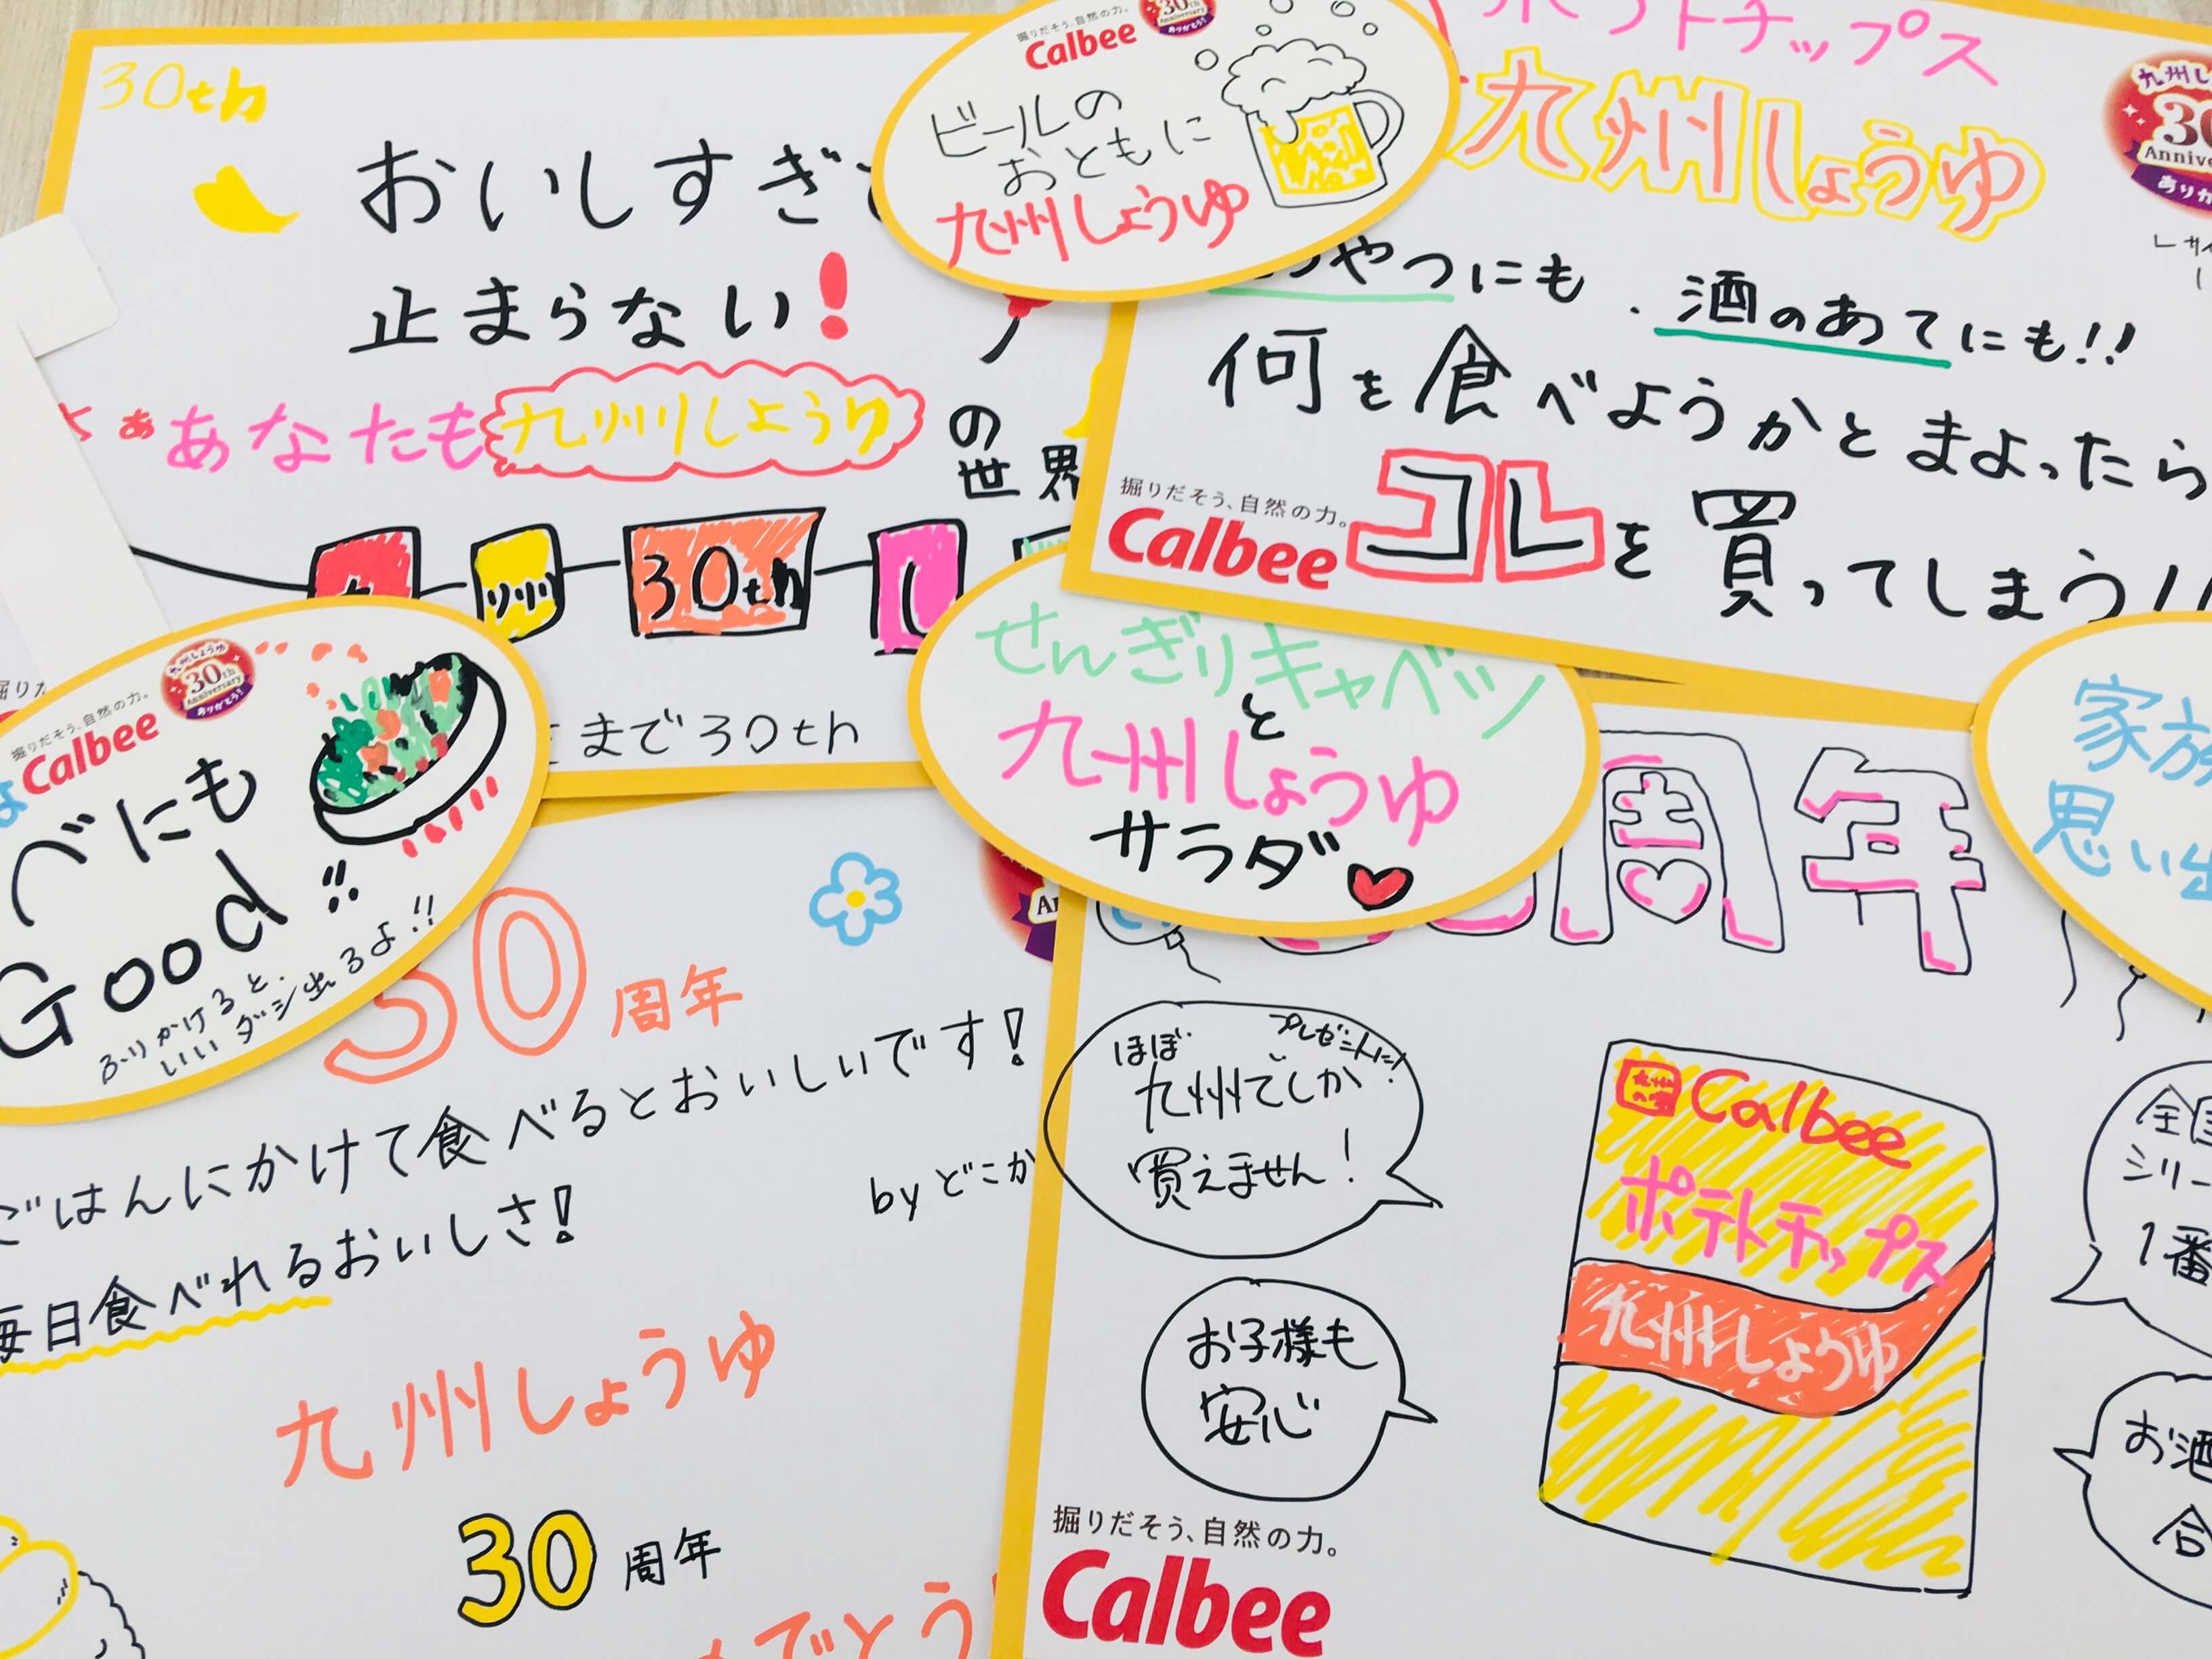 30th
おいしすぎ
止まらない!
あなたも九州しょうゆの
世界
九
州
30th
し
まで30th
掘りだそう、自然の力。
Calbee
30th
Anniversary
ありがとう!
ビールの
おともに
九州しょうゆ
ポテトチップス
九州しょうゆ
おやつにも、酒のあてにも!!
何を食べようかとまよったら
コレを買ってしまう!!
掘りだそう、自然の力。
Calbee
掘りだそう、自然の力。
Calbee
九州しょうゆ
30th
Anniversary
ありがとう!
べにも
Good!!
ふりかけると、
いいダシ出るよ!!
せんぎりキャベツ
と
九州しょうゆ
サラダ
家族
思い出
30周年
ごはんにかけて食べるとおいしいです!
byどこか
毎日食べれるおいしさ!
九州しょうゆ
30周年
でとう
周年
ほぼ
九州でしか
買えません!
プレゼントに!
お子様も
安心
Calbee
ポテトチップス
九州しょうゆ
シリー
1番
お酒
合
掘りだそう、自然の力。
Calbee